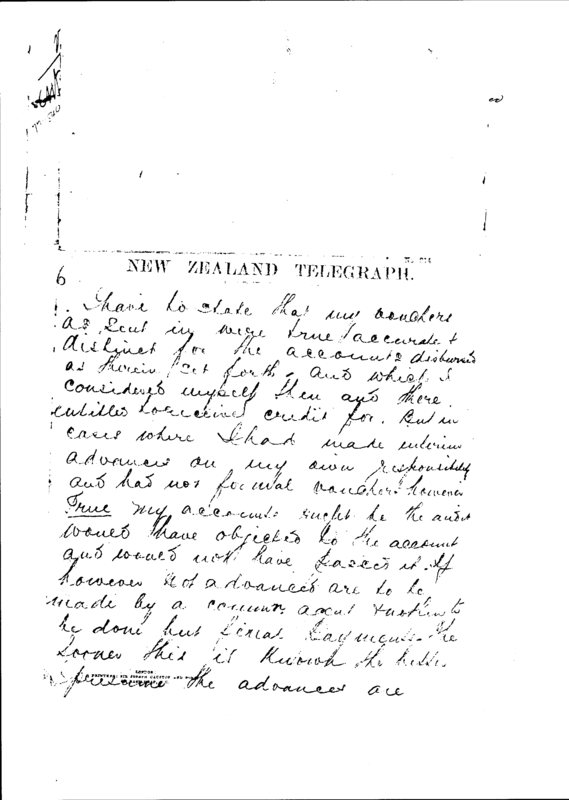 No. 214
NEW ZEALAND TELEGRAPH.
6
I have to state that my vouchers
as sent in were true accurate &
distinct for the accounts disbursed
as therein set forth. and which I
considered myself then and there
entitled to receive credit for. But in
cases where I had made interim
advances on my own responsibility
and had not formal vouchers however
True my accounts might be the audit
would have objected to the account
and would not have passed it. If
however no advances are to be
made by a agent & nothing to
be done but final payments the
sooner this is known the better
LONDON
presume the advances are